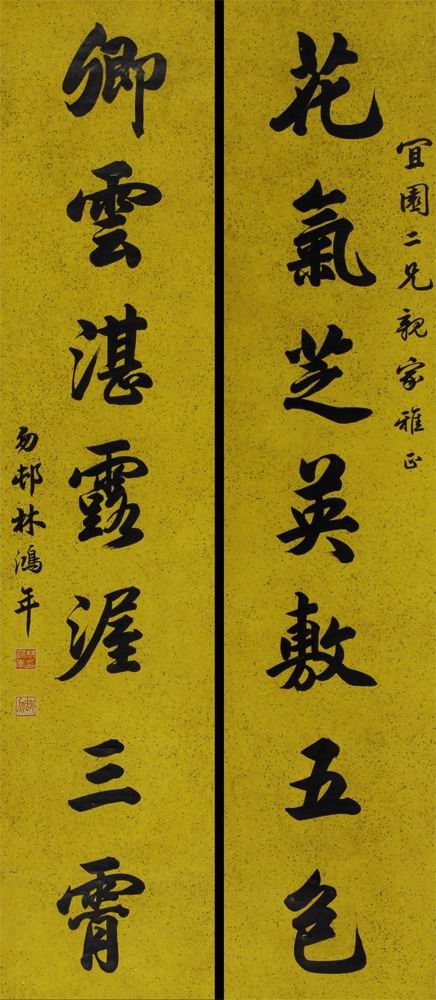 宜園二兄親家雅正
花氣芝英敷五色
卿雲湛露渥三霄
勿邨林鴻年